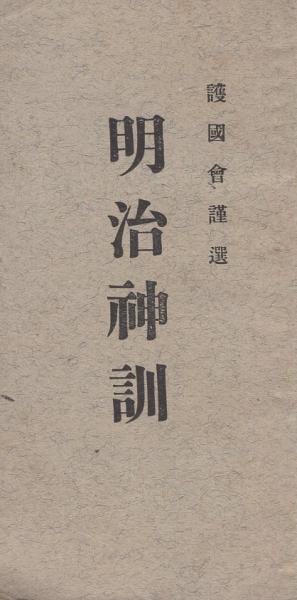 護國會謹選
明治神訓